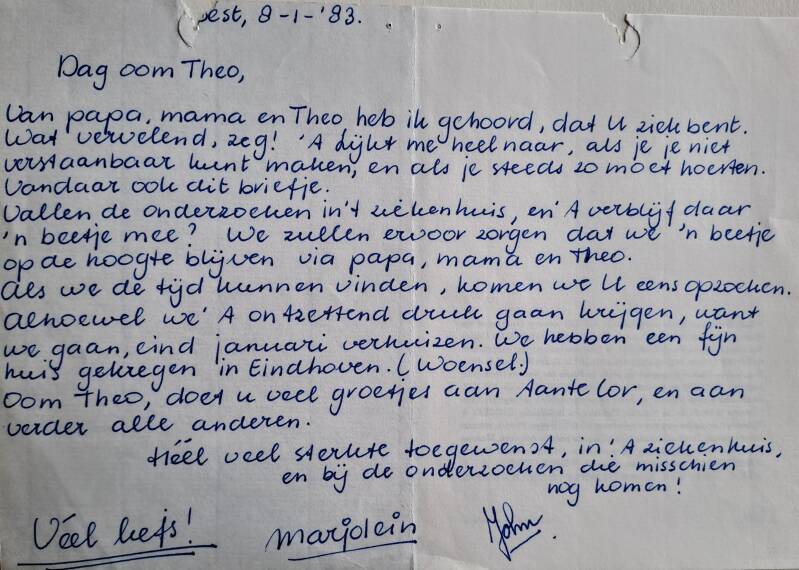 Best, 9-1-'83.
Dag oom Theo,
Van papa, mama en Theo heb ik gehoord, dat U ziek bent.
Wat vervelend, zeg! 't Lijkt me heel naar, als je je niet
verstaanbaar kunt maken, en als je steeds zo moet hoesten.
Vandaar ook dit briefje.
Vallen de onderzoeken in 't ziekenhuis, en 't verblijf daar
'n beetje mee? We zullen ervoor zorgen dat we 'n beetje
op de hoogte blijven via papa, mama en Theo.
Als we de tijd kunnen vinden, komen we U eens opzoeken.
Alhoewel we 't ontzettend druk gaan krijgen, want
we gaan, eind januari verhuizen. We hebben een fijn
huis gekregen in Eindhoven. (Woensel.)
Oom Theo, doet u veel groetjes aan tante Cor, en aan
verder alle anderen.
Héél veel sterkte toegewenst, in 't ziekenhuis,
en bij de onderzoeken die misschien
nog komen!
Véél liefs! Marjolein John.